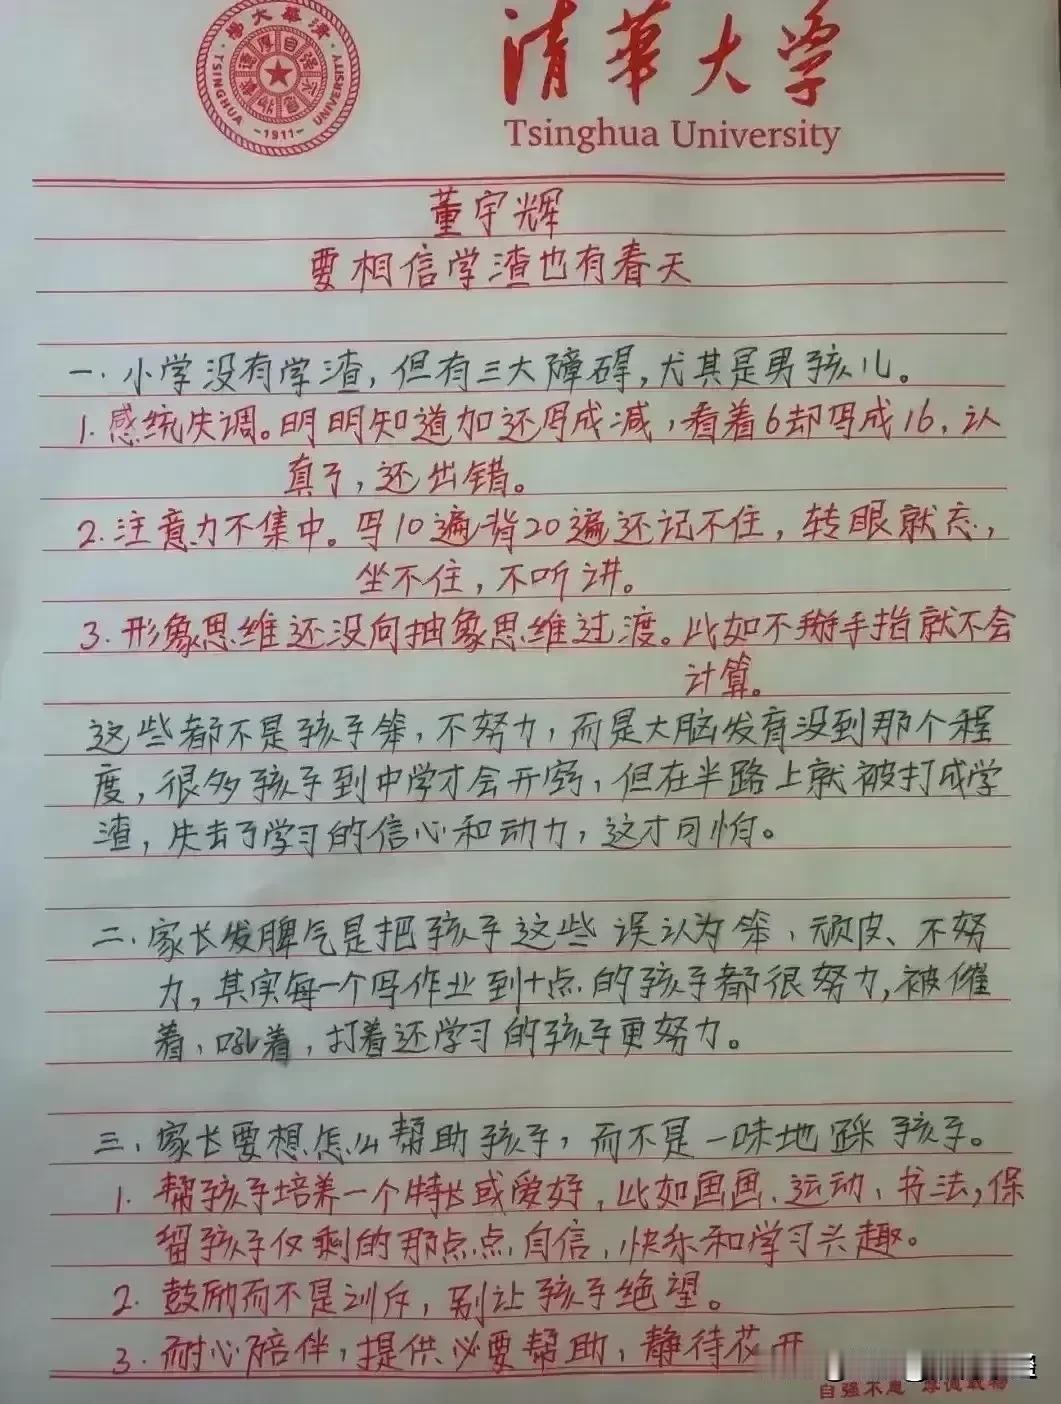 清華大學
TSINGHUA UNIVERSITY
自强不息
-1911-
清華大学
Tsinghua University
董宇辉
要相信学渣也有春天
一.小学没有学渣,但有三大障碍,尤其是男孩儿。
1.感统失调。明明知道加还写成减,看着6却写成16,认
真了,还出错。
2.注意力不集中。写10遍背20遍还记不住,转眼就忘,
坐不住,不听讲。
3.形象思维还没向抽象思维过渡。比如不掰手指就不会
计算。
这些都不是孩子笨,不努力,而是大脑发育没到那个程
度,很多孩子到中学才会开窍,但在半路上就被打成学
渣,失去了学习的信心和动力,这才可怕。
二.家长发脾气是把孩子这些误认为笨、顽皮、不努
力,其实每一个写作业到十点的孩子都很努力,被催
着、吼着,打着还学习的孩子更努力。
三、家长要想怎么帮助孩子,而不是一味地踩孩子。
1.帮孩子培养一个特长或爱好,比如画画、运动、书法,保
留孩子仅剩的那点点自信、快乐和学习兴趣。
2.鼓励而不是训斥,别让孩子绝望。
3.耐心陪伴,提供必要帮助,静待花开
自强不息